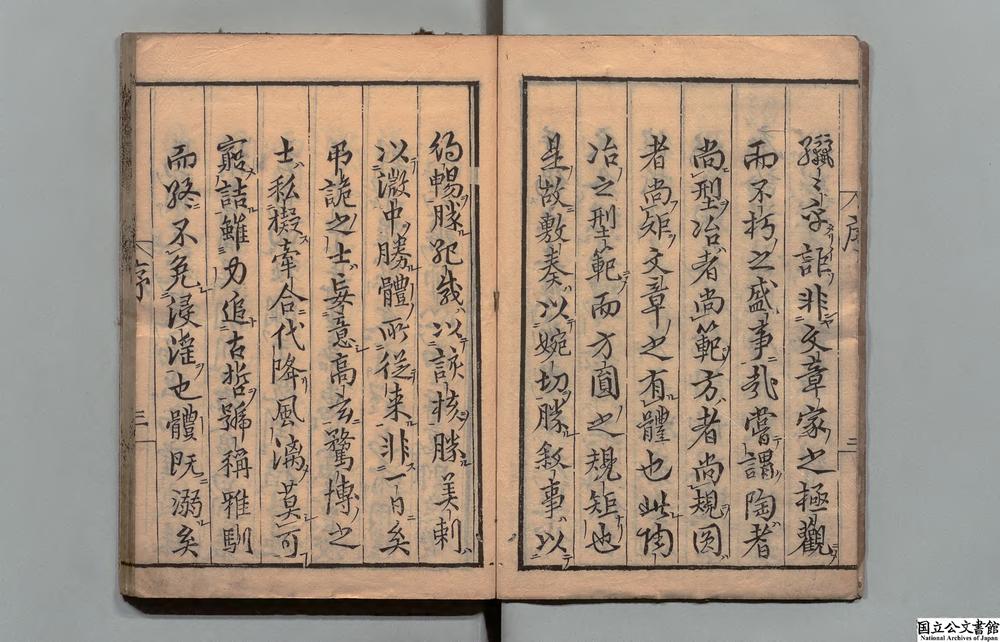 序 二
纚〻乎詎非文章家之極觀
而不朽之盛事哉嘗謂陶者
尚型冶者尚範方者尚規圆
者尚矩文章之有體也此陶
冶之型範而方圓之規矩也
是故敷奏以婉切勝敘事以
約暢勝紀載以該核勝美刺
以微中勝體所從来非一日矣
弔詭之士妄意高玄騖博之
士私擬牽合代降風漓莫可
窮詰雖力追古哲號稱雅馴
而終不免浸淫也體既溺矣
序 三
国立公文書館
National Archives of Japan